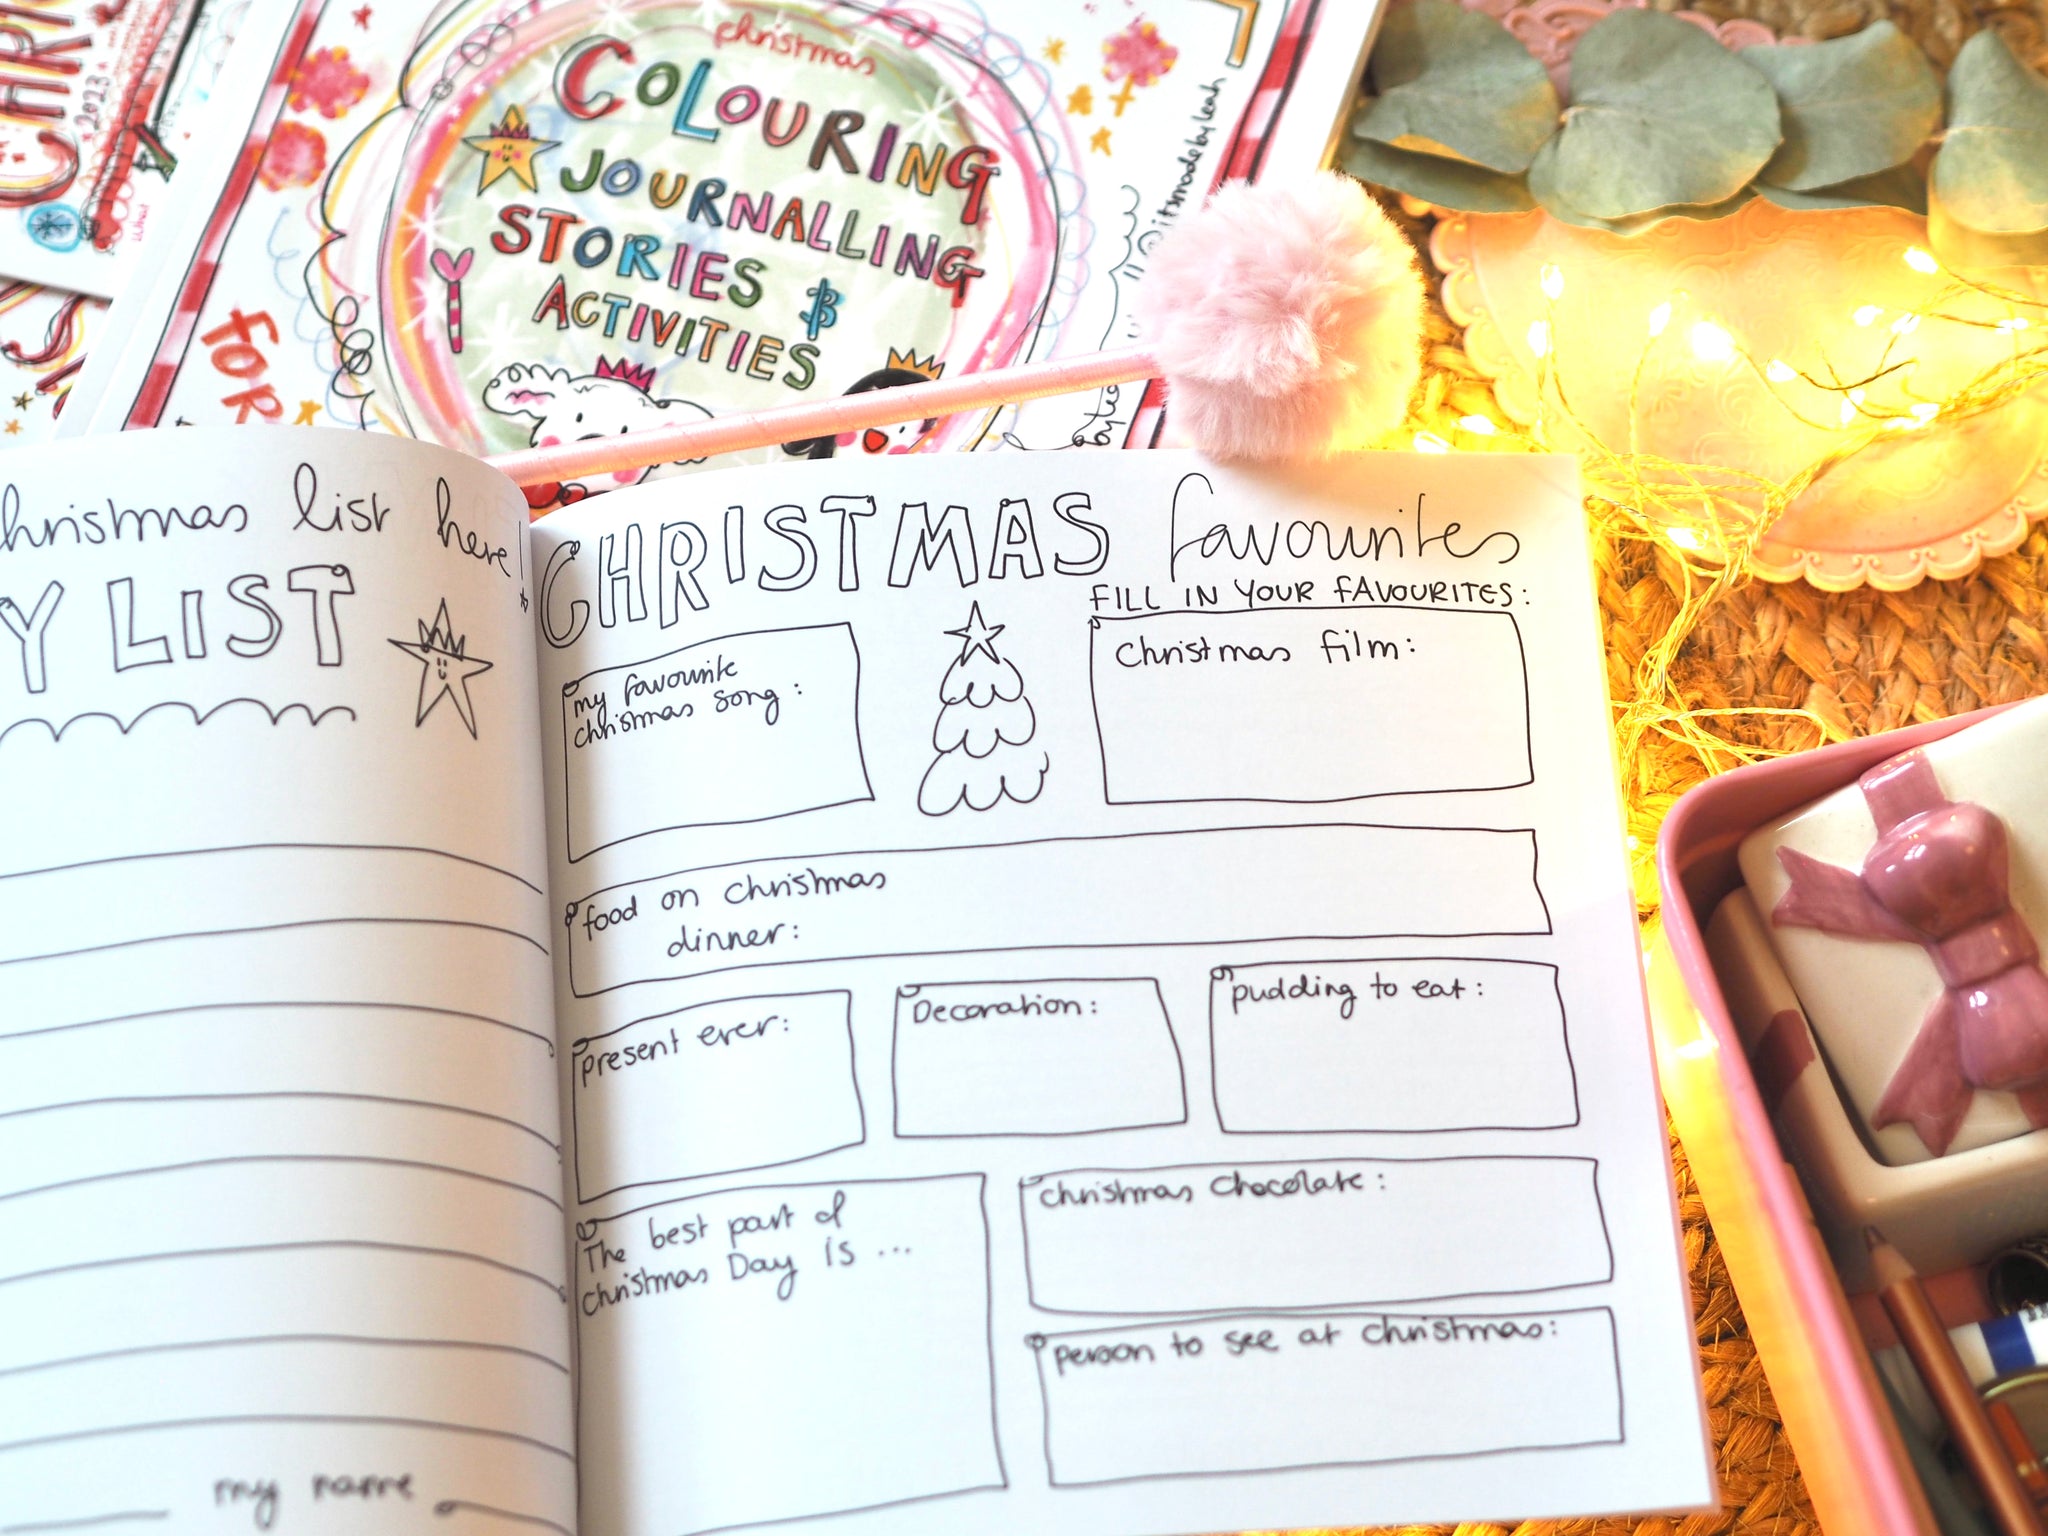 2023
christmas
COLOURING
JOURNALLING
STORIES &
ACTIVITIES
FOR
@itsmadebyleah
christmas list here!
Y LIST
my name
CHRISTMAS favourites
FILL IN YOUR FAVOURITES:
my favourite
christmas song:
christmas film:
food on christmas
dinner:
present ever:
Decoration:
pudding to eat:
The best part of
christmas Day is ...
christmas chocolate:
person to see at christmas: